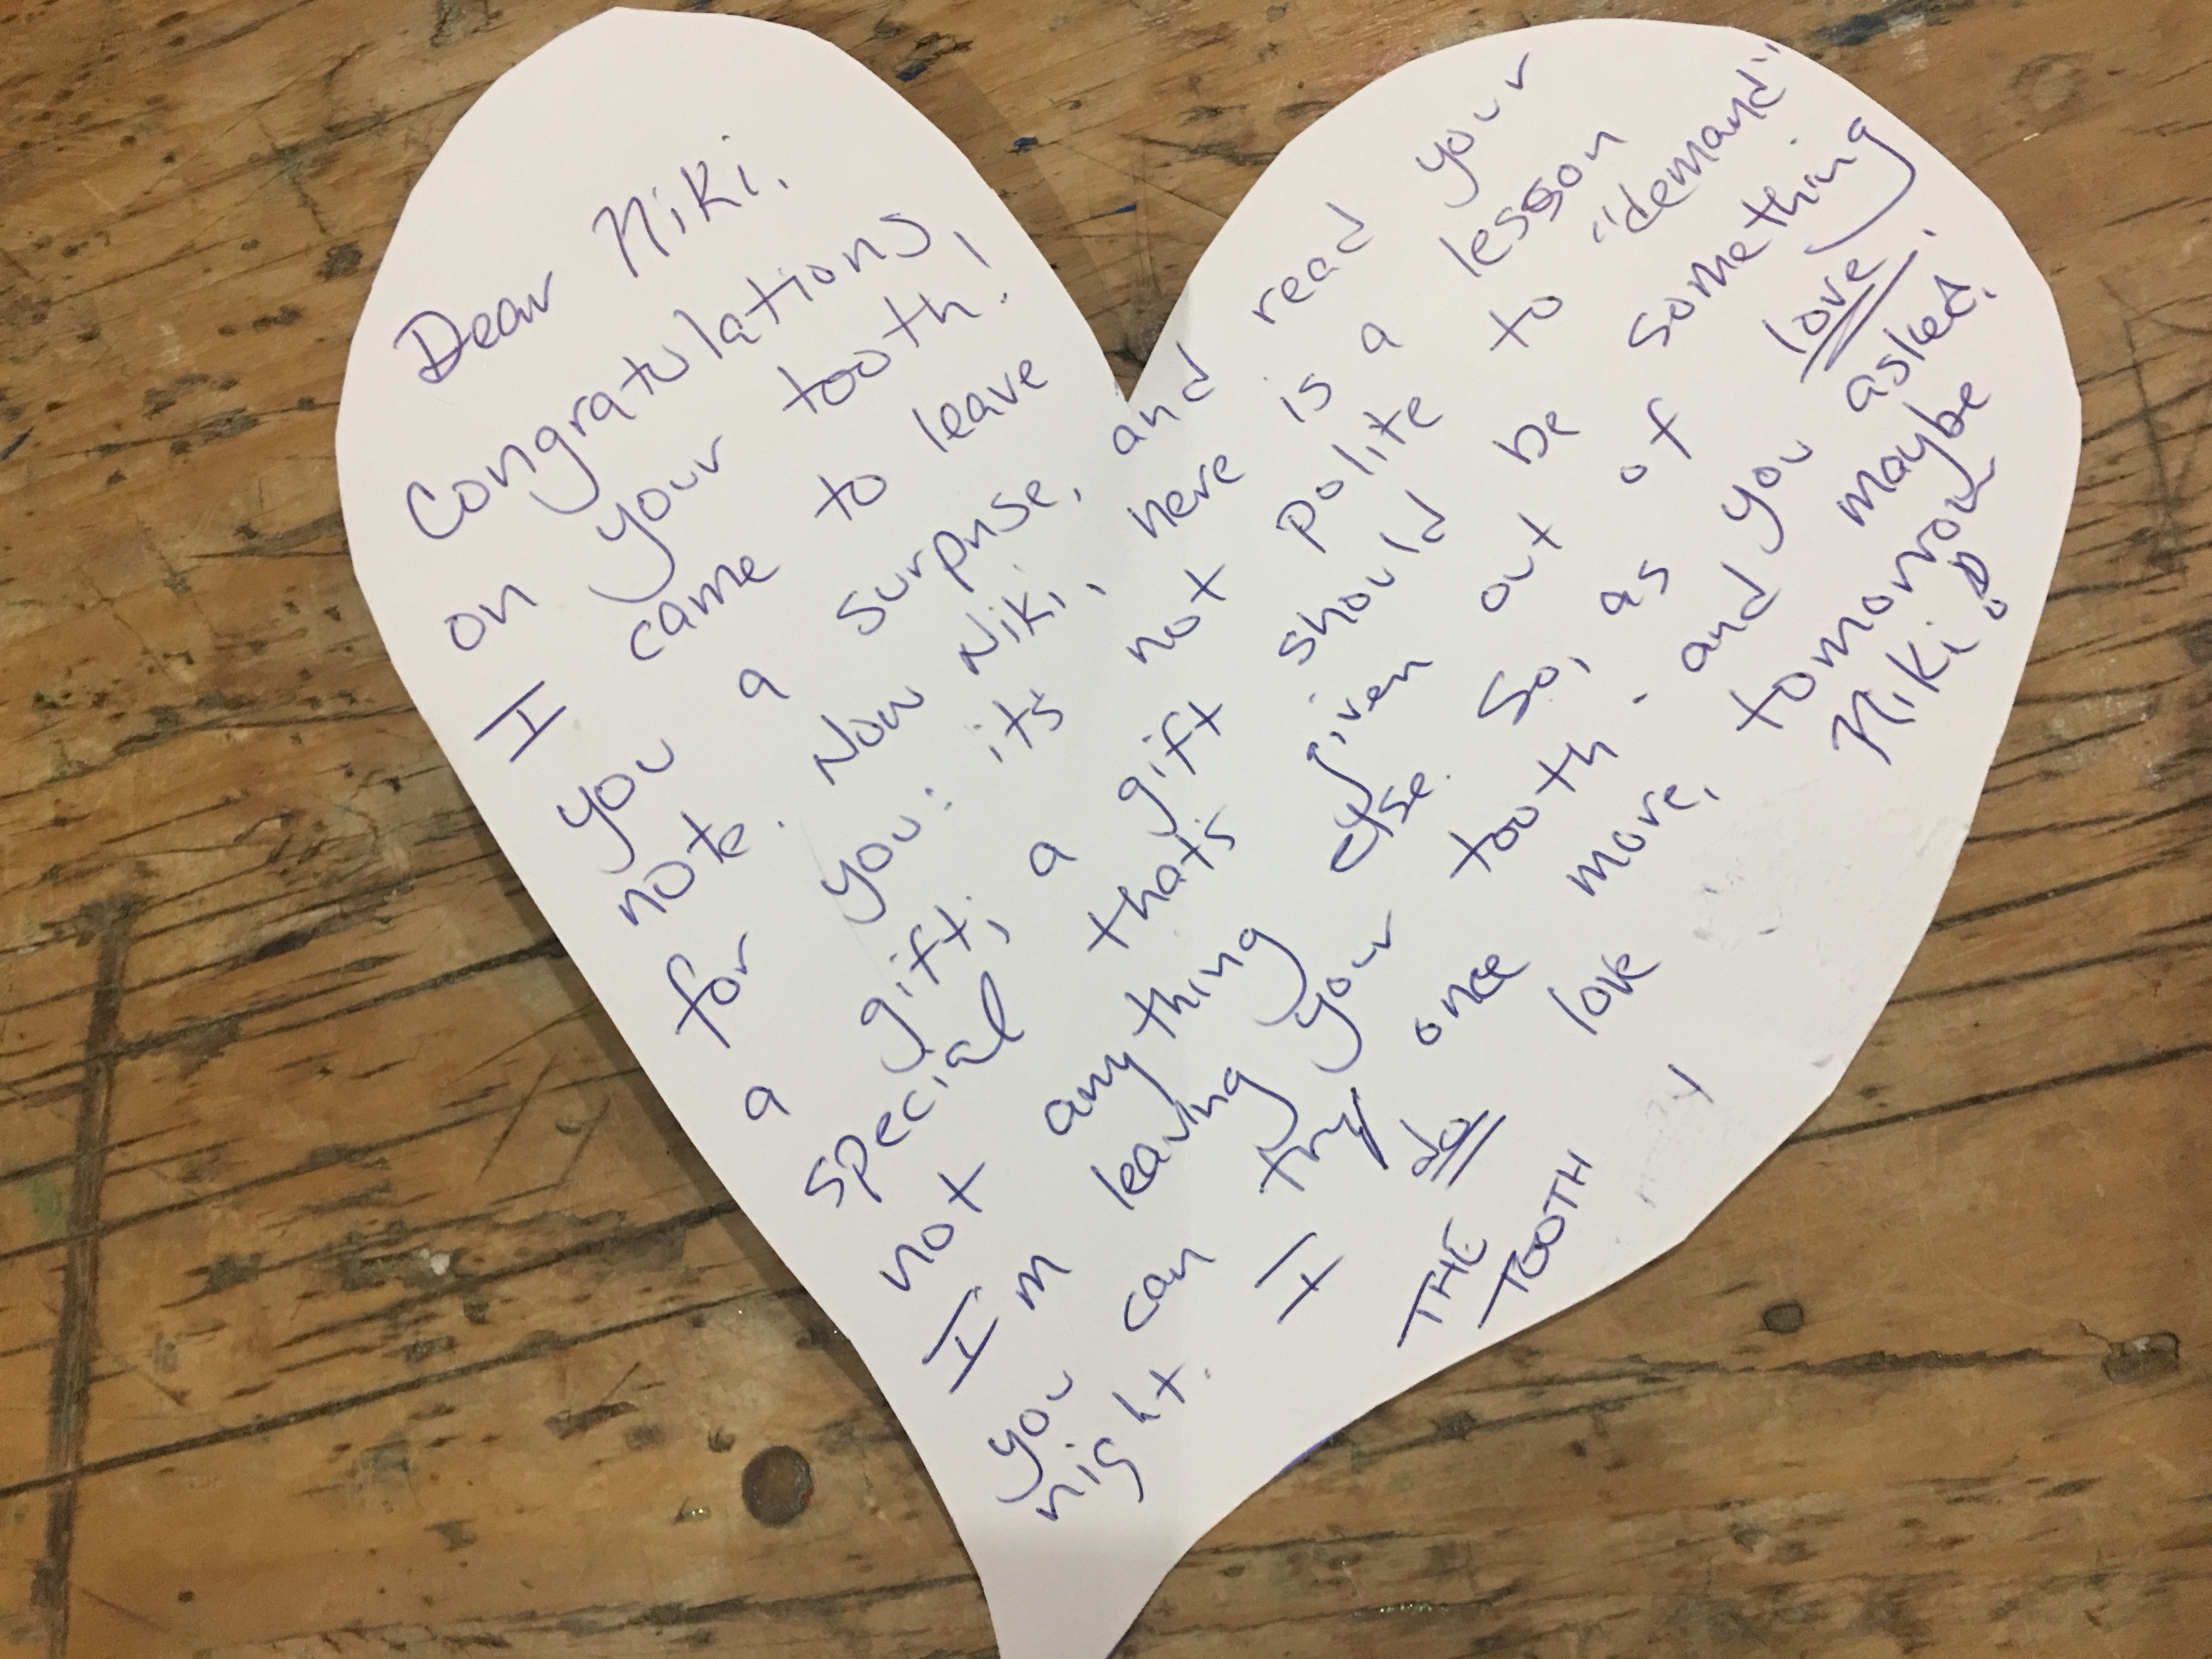 Dear Niki.
Congratulations,
on your tooth!
I came to leave
you a surprise, and read your
note. Now Niki, here is a lesson
for you: its not polite to "demand"
a gift; a gift should be something
special thats given out of love.
not anything else. So, as you asked,
I'm leaving your tooth - and maybe
you can try once more, tomorrow
night. I do love Niki!
THE
TOOTH